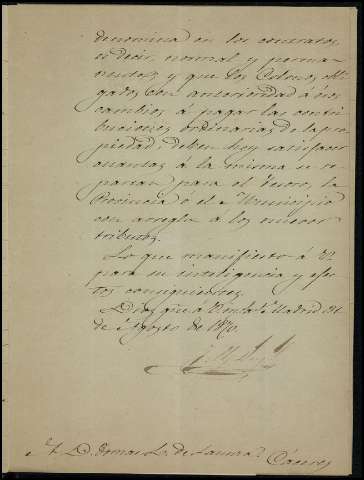 denomina en los contratos,
es decir, normal y perma-
nentes, y que los Colonos obli-
gados con anterioridad á esos
cambios á pagar las contri-
buciones ordinarias de la pro-
piedad, deben hoy satisfacer
cuantas á la misma se re-
partan para el Tesoro, la
Provincia ó el Municipio
con arreglo á los nuevos
tributos.
Lo que manifiesto á V.
para su inteligencia y efec-
tos consiguientes.
Dios gue á V. m. a. Madrid 31
de Agosto de 1870.
S. D. Tomas L. de
Cáceres